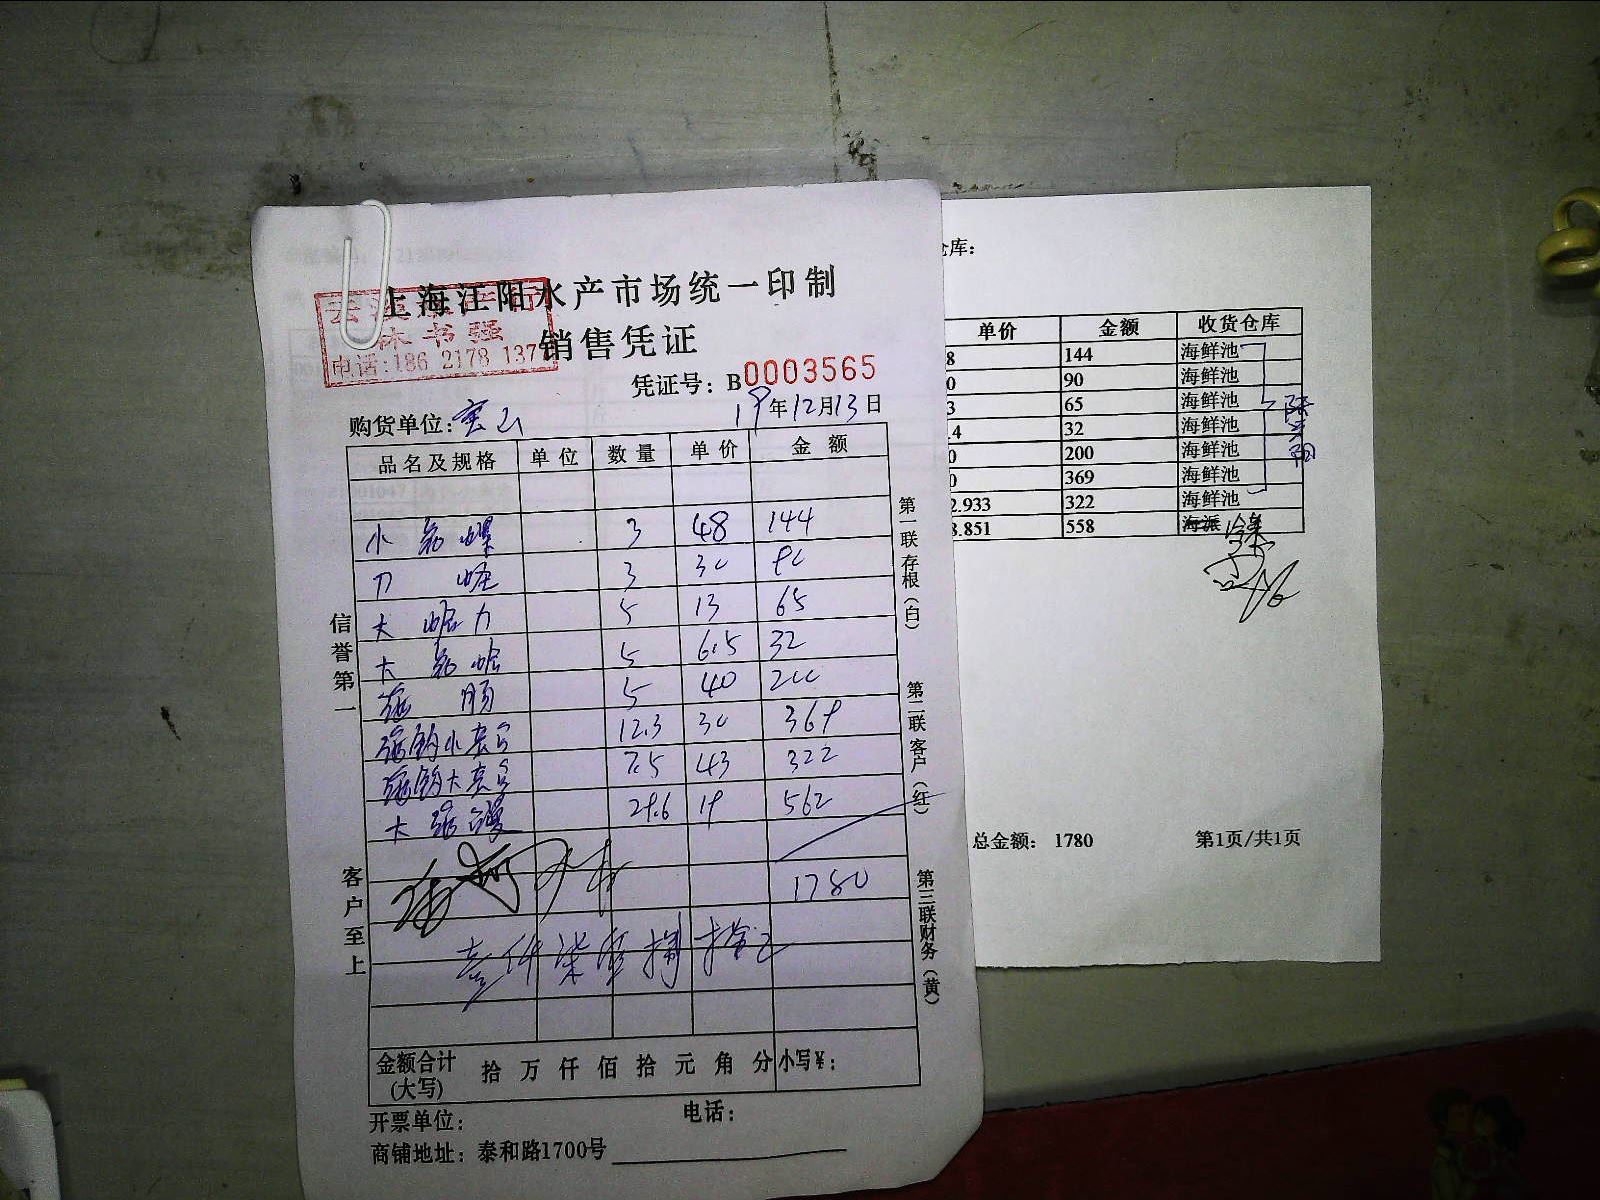 上海江阳水产市场统一印制
林书强
销售凭证
电话:186 2178 137
凭证号: B0003565
购货单位: 宝山
19年12月13日
品名及规格 单位 数量 单价 金额
小 螺 3 48 144
刀 蛏 3 30 90
大 蛤力 5 13 65
大 蛤 5 6.5 32
肠 5 40 200
小 12.3 30 369
大 7.5 43 322
大 29.6 19 562
1780
壹仟柒佰捌拾元
金额合计(大写) 拾 万 仟 佰 拾 元 角 分 小写¥:
开票单位: 电话:
商铺地址: 泰和路1700号
信誉第一
客户至上
第一联存根(白)
第二联客户(红)
第三联财务(黄)
仓库:
单价 金额 收货仓库
8 144 海鲜池
0 90 海鲜池
3 65 海鲜池
.4 32 海鲜池
0 200 海鲜池
0 369 海鲜池
2.933 322 海鲜池
8.851 558
总金额: 1780 第1页/共1页